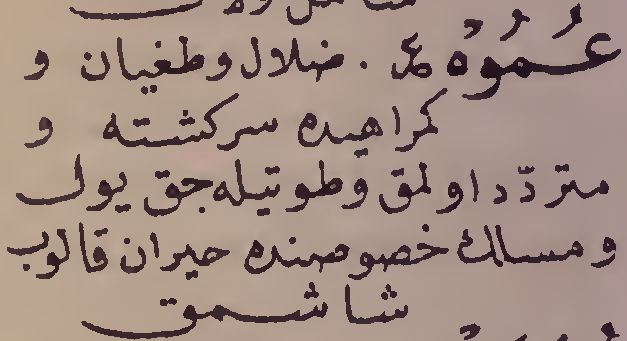 عُمُوهْ ع. ضلال وطغيان و
كمراهيده سركشته و
متردّد اولمق وطوتيله جق يول
ومسالك خصوصنده حيران قالوب
شاشمق